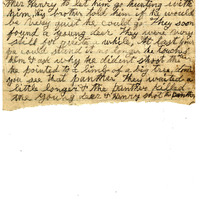 ther Henry to let him go hunting with
him, his brother told him if he would
be very quiet he could go. They soon
found a young deer. They were very
still for quite a while, At last
he could stand it no longer he touched
him & ask why he didént shoot
he pointed to a limb of a big tree,
you see that panther they waited a
little longer & the panther killed
the young deer & Henry shot the panther